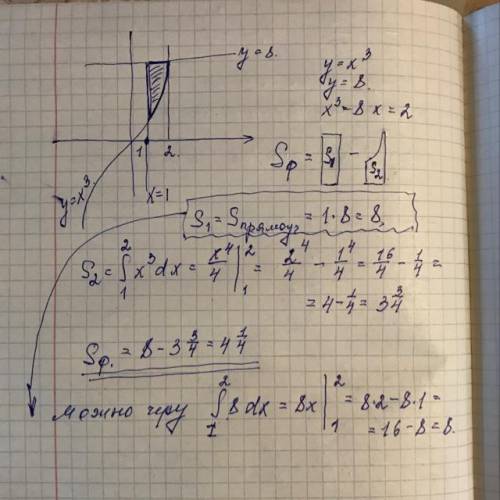 y=8.
y=x³
y=8.
x³=8 x=2
1 2.
x=1
y=x³
Sф = S₁ − S₂
S₁ = Sпрямоуг = 1·8 = 8
S₂ = ∫₁² x³dx = x⁴/4 |₁² = 2⁴/4 − 1⁴/4 = 16/4 − 1/4 =
= 4 − 1/4 = 3 3/4
Sф. = 8 − 3 3/4 = 4 1/4
можно ∫₁² 8dx = 8x |₁² = 8·2 − 8·1 =
= 16 − 8 = 8.